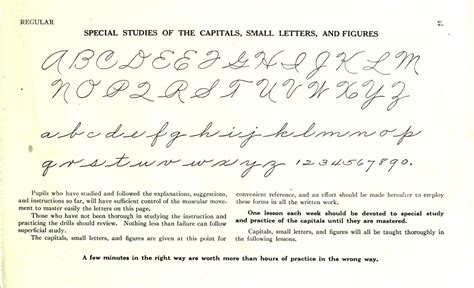 REGULAR
2.
SPECIAL STUDIES OF THE CAPITALS, SMALL LETTERS, AND FIGURES
A B C D E F G H I J K L M
N O P Q R S T U V W X Y Z
a b c d e f g h i j k l m n o p
q r s t u v w x y z 1 2 3 4 5 6 7 8 9 0.
Pupils who have studied and followed the explanations, suggestions,
and instructions so far, will have sufficient control of the muscular move-
ment to master easily the letters on this page.
Those who have not been thorough in studying the instruction and
practicing the drills should review. Nothing less than failure can follow
superficial study.
The capitals, small letters, and figures are given at this point for
convenient reference, and an effort should be made hereafter to employ
these forms in all the written work.
One lesson each week should be devoted to special study
and practice of the capitals until they are mastered.
Capitals, small letters, and figures will all be taught thoroughly in
the following lessons.
A few minutes in the right way are worth more than hours of practice in the wrong way.